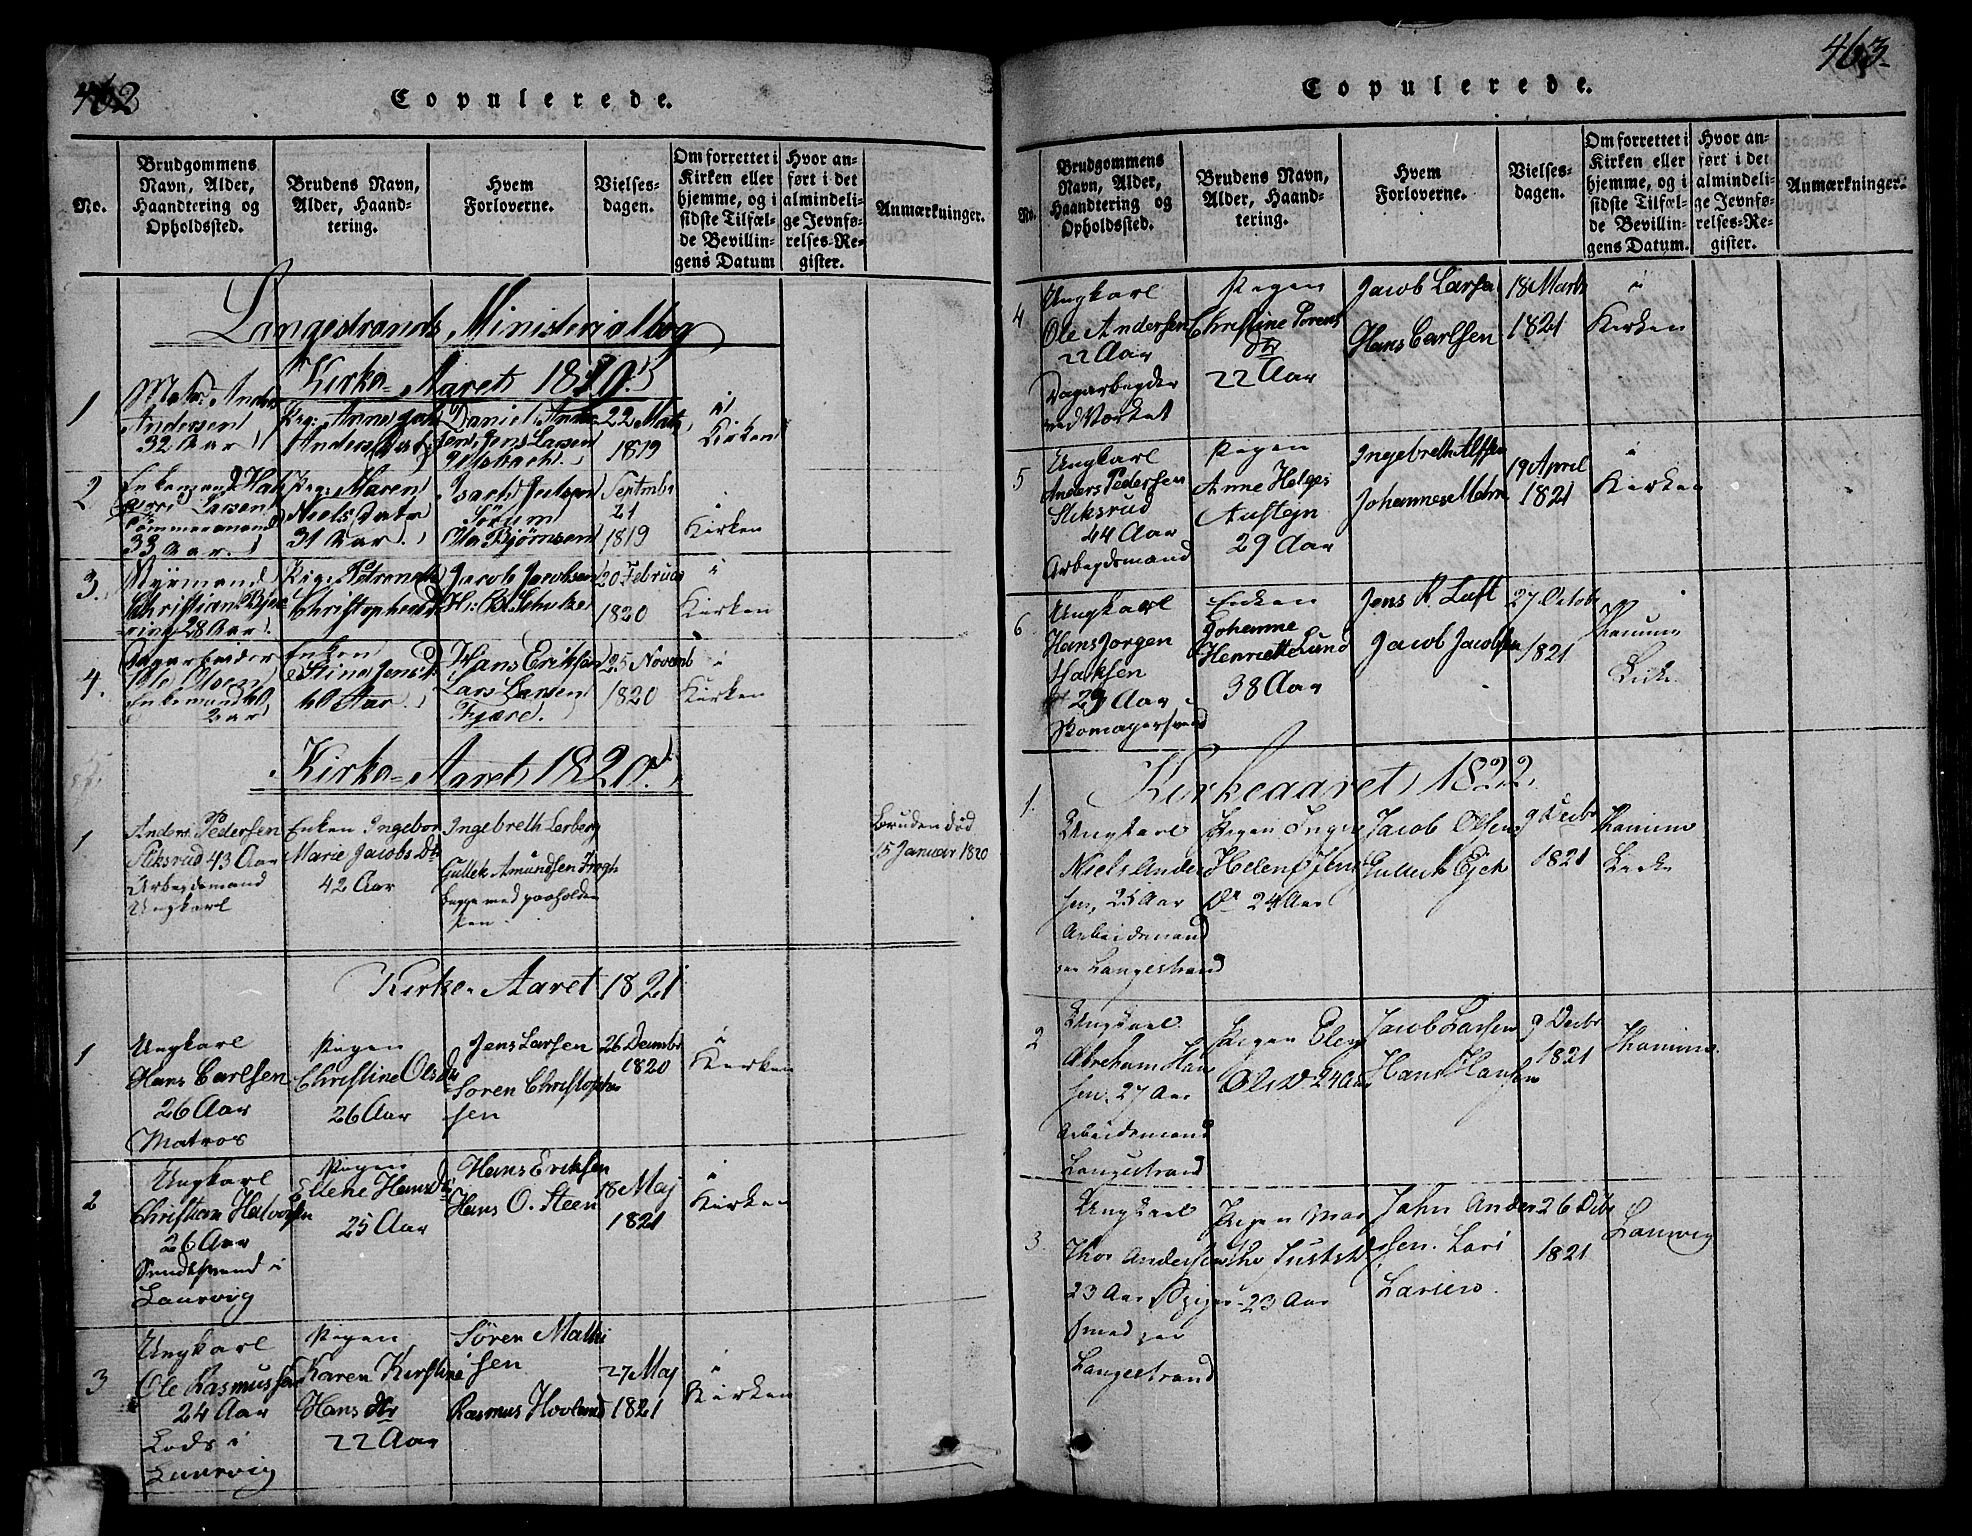 462
Copulerede.
No.
Brudgommens
Navn, Alder,
Haandtering og
Opholdssted.
Brudens Navn,
Alder, Haand-
tering.
Hvem
Forloverne.
Vielses-
dagen.
Om forrettet i
Kirken eller
hjemme, og i
sidste Tilfæl-
de Bevillin-
gens Datum
Hvor an-
ført i det
almindeli-
ge Jevnfø-
relses-Re-
gister.
Anmærkninger.
Langestrands Ministerialbog
Kirke-Aaret
1
Andersen
32 Aar
Daniel
Jens Larsen
22
1819
i
Kirken
2
Larsen
33 Aar.
Pig: Maren
Niels Datr
31 Aar.
Ole Bjørnsen
Septmbr
21
1819
i
Kirken
3.
Christian
28 Aar.
Christophersd
Jacob Jacobsen
H: B. Schultze
20 Februar
1820
i
Kirken
4.
Ole Olsen
Enkemand 60
Aar
Enken
Stine Jensd
60 Aar.
Hans Eriksen
Lars Larsen
Fjære.
25 Novemb
1820
i
Kirken
Kirke-Aaret 1820
1
Anders Pedersen
Sliksrud 43 Aar
Arbegdsmand
Ungkarl
Enken Ingebor
Marie Jacobs Dtr
42 Aar
Ingebreth Lerberg
Gullek Amundsen
Bruden død
15 Januar 1820
Kirke-Aaret 1821
1
Ungkarl
Hans Carlsen
26 Aar
Matros
Pigen
Christine Ols dtr
26 Aar
Jens Larsen
Søren Christophe
sen
26 Decembr
1820
i
Kirken
2
Ungkarl
Christian Halvorsen
26 Aar
Laurvig
Pigen
Ellene Hans Dtr
25 Aar
Hans Eriksen
Hans O. Steen
18 Maj
1821
i
Kirken
3
Ungkarl
Ole Rasmussen
24 Aar
Lods i
Laurvig
Pigen
Karen Kirstine
Hans dtr
22 Aar
Søren Mathi
sen
Rasmus Hovland
27 Maj
1821
i
Kirken
463
Copulerede.
No.
Brudgommens
Navn, Alder,
Haandtering og
Opholdssted.
Brudens Navn,
Alder, Haand-
tering.
Hvem
Forloverne.
Vielses-
dagen.
Om forrettet i
Kirken eller
hjemme, og i
sidste Tilfæl-
de Bevillin-
gens Datum.
Hvor an-
ført i det
almindeli-
ge Jevnfø-
relses-Re-
gister.
Anmærkninger.
4
Ungkarl
Ole Andersen
22 Aar
Dagarbegder
ved Værket
Pigen
Christine Sørens
dtr
22 Aar
Jacob Larsen
Hans Carlsen
18 Marts
1821
i
Kirken
5
Ungkarl
Anders Pedersen
Sliksrud
44 Aar
Arbegdsmand
Pigen
Anne Helges
29 Aar
Ingebreth Alfsen
Johannes Malm
19 April
1821
i
Kirken
6
Ungkarl
Hans Jørgen
Isaksen
29 Aar
Skomagersvend
Enken
Johanne
Henriette Lund
38 Aar
Jens R. Luft
Jacob Jacobsen
27 Octobr
1821
Kirkeaaret 1822.
1.
Ungkarl
Niels Ander
sen, 25 Aar
Arbeidsmand
paa Langestrand
Pigen Inger
Helene Jens
Dr 24 Aar
Jacob Olsen
Gullik Ejek
9 Decbr
1821
2
Ungkarl
Abraham Han
sen. 27 Aar
Arbeidsmand
Langestrand
Pigen Eleg
Ols D. 24 Aar
Jacob Larsen
Hans Hansen
9 Decbr
1821
3
Ungkarl
Thor Andersen
23 Aar
smed paa
Langestrand
Pigen Mar
the Justsd
23 Aar
John Ander
sen. Lars
Larsen.
26 Decbr
1821
Laurvig